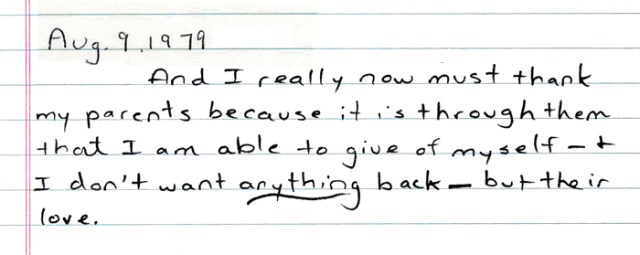 Aug. 9, 1979
And I really now must thank
my parents because it is through them
that I am able to give of myself – &
I don't want anything back – but their
love.